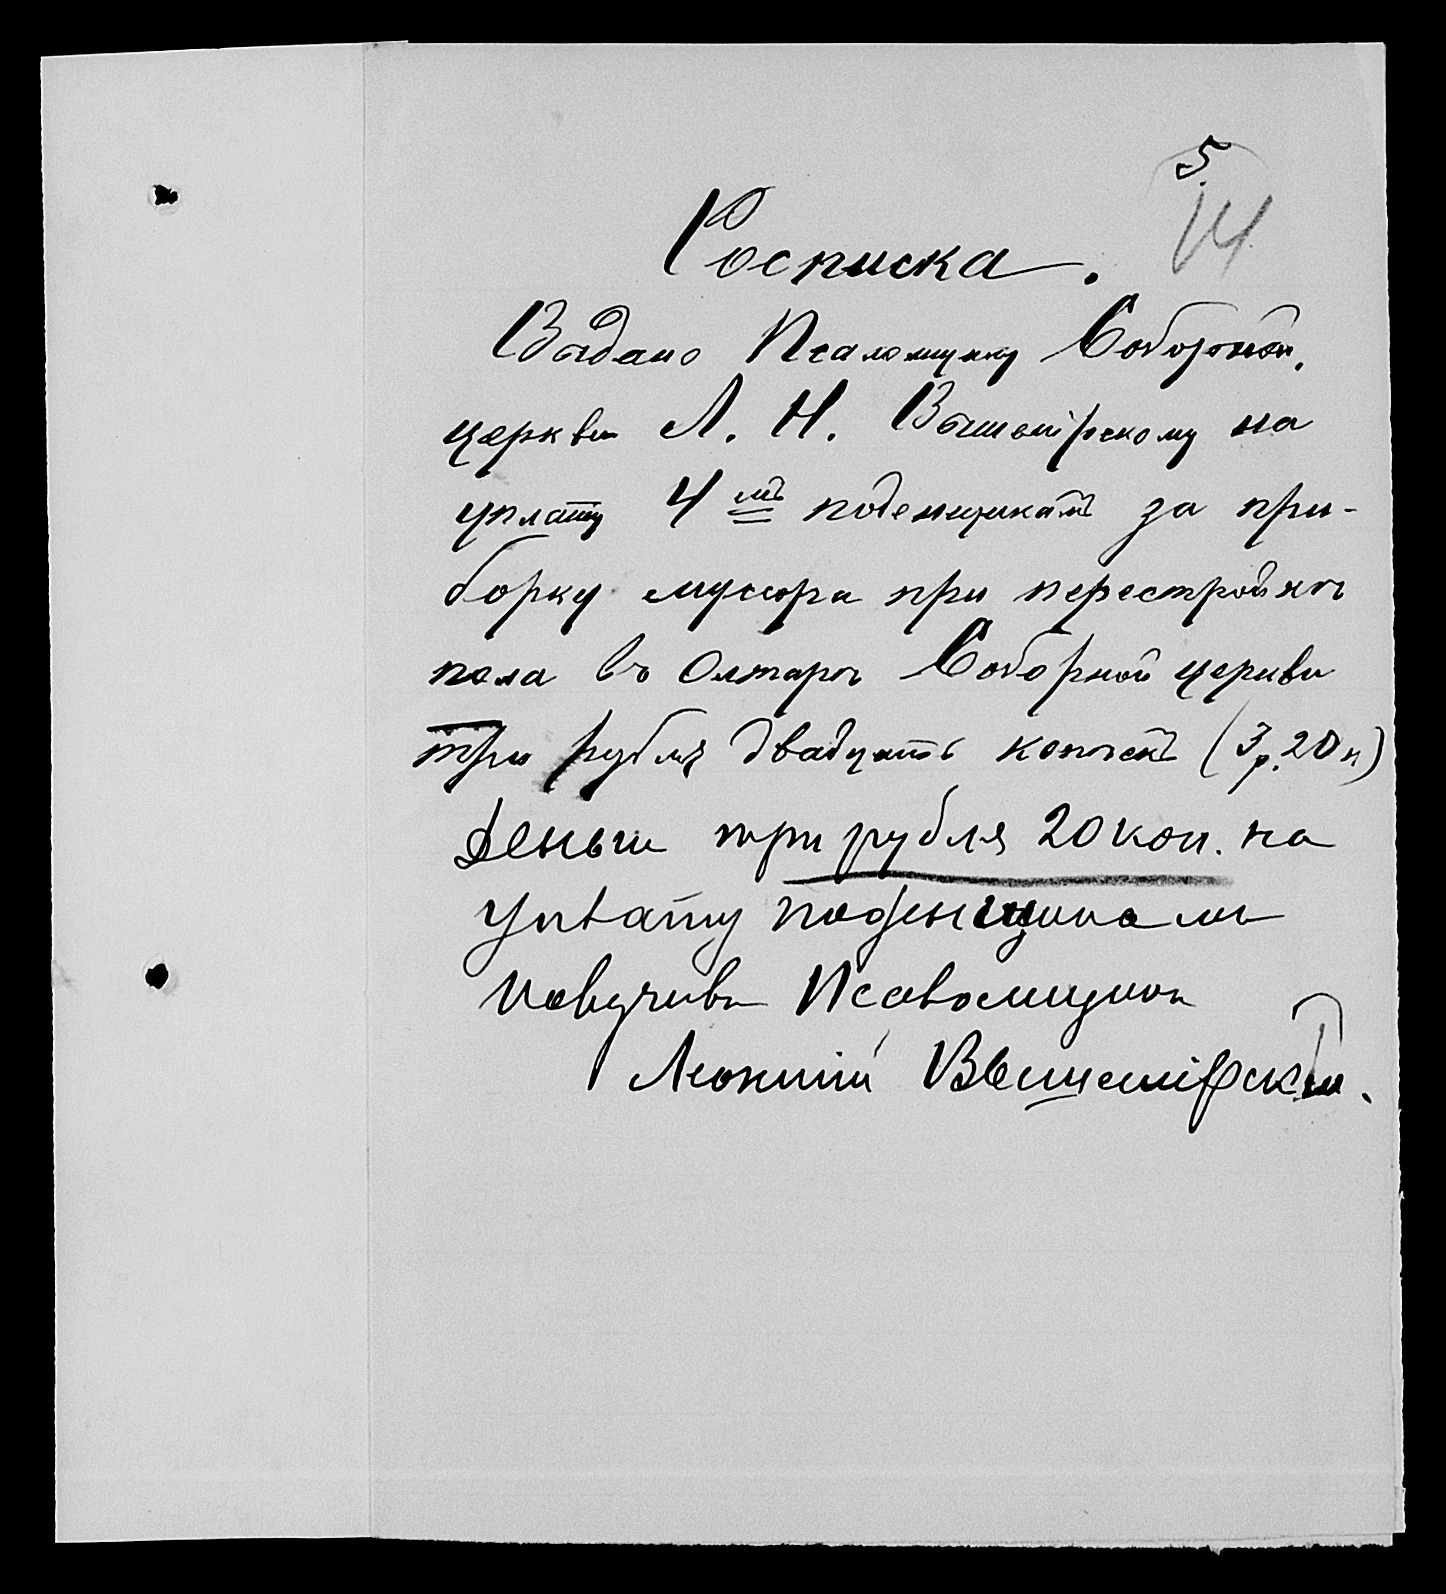 5.
14
Росписка.
Выдано Псаломщику Соборной
церкви Л. Н. Вышемірскому на
уплату 4мъ поденщикамъ за при-
борку мусора при перестройкѣ
пола въ Олтарѣ Соборной церкви
три рубля двадцать копѣекъ (3 р. 20 к)
Деньги три рубля 20 коп. на
уплату поденщикамъ
получивъ Псаломщикъ
Леонтій Вышемірскій.